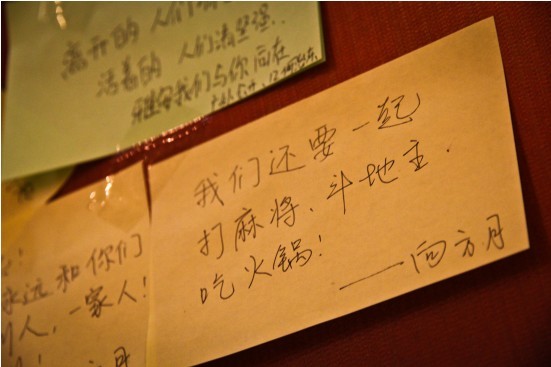 离开的 人们
活着的 人们请坚强.
雅安我们与你同在
我们还要一起
打麻将、斗地主.
吃火锅!
——向方月
永远和你们
人,一家人!
人!
方月